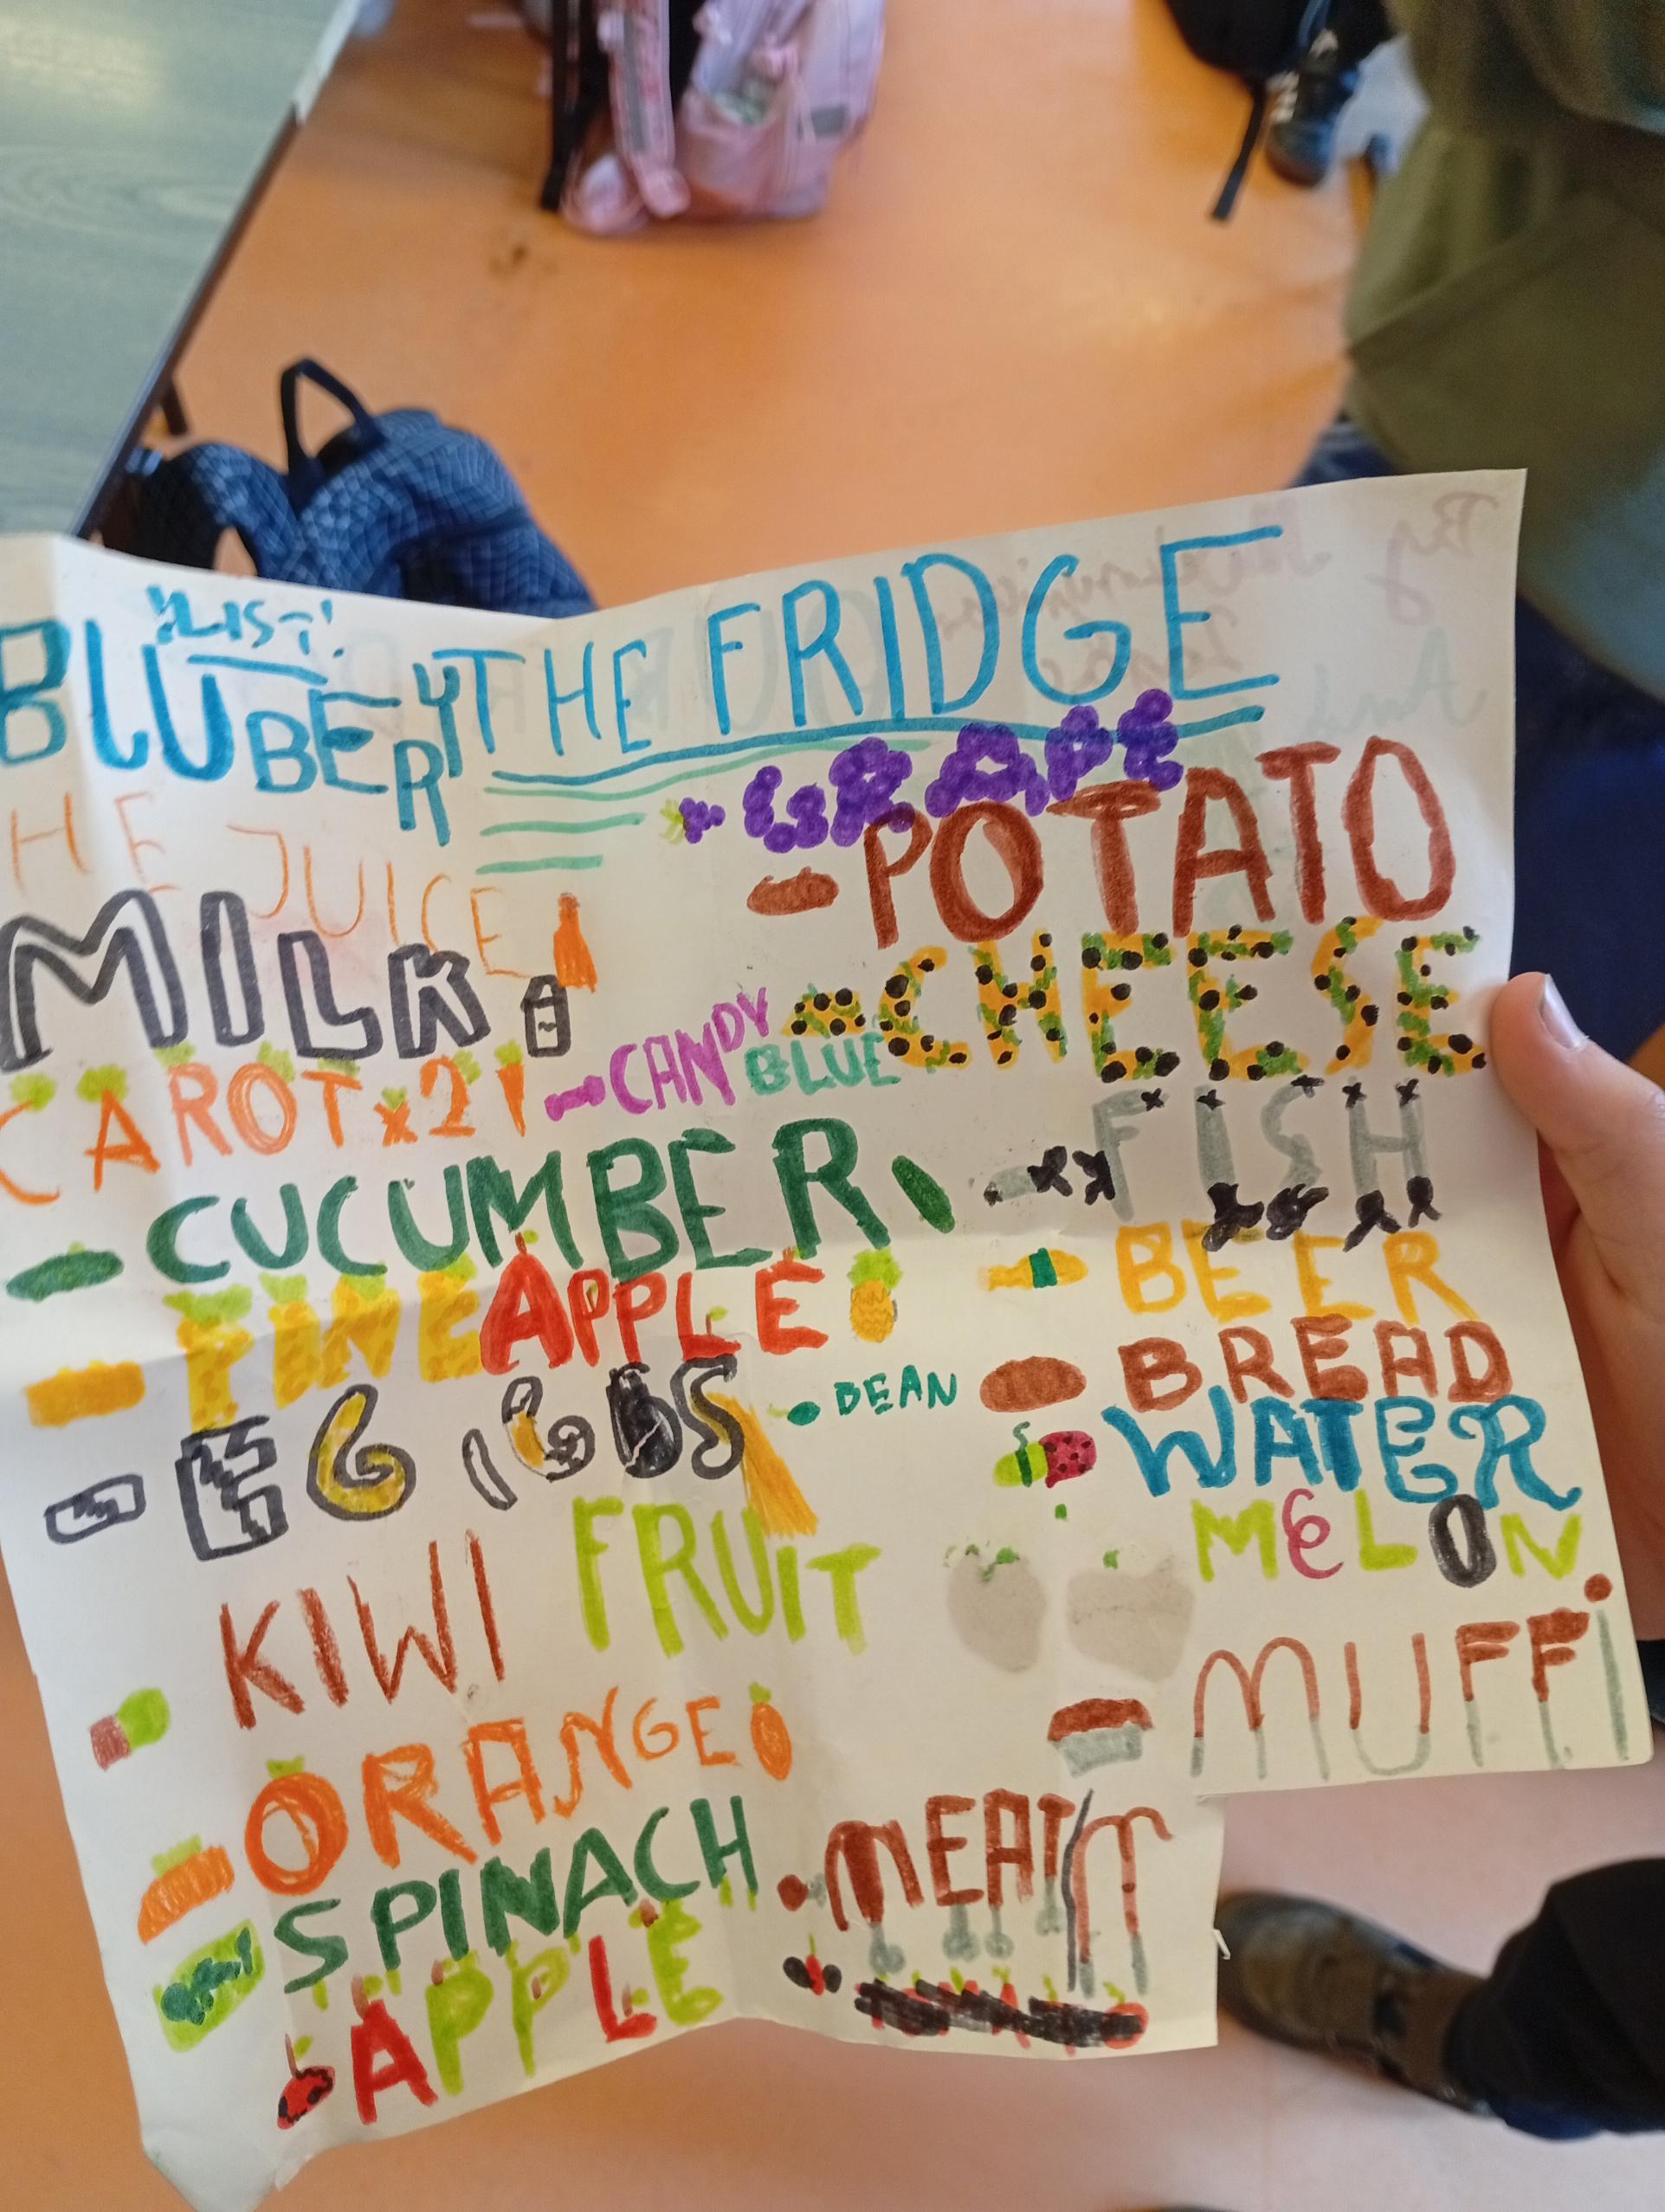 "LIST"
THE FRIDGE
BLUBERY
HE JUICE
MILK
CAROT x21
CUCUMBER
PINEAPPLE
EGGS
KIWI FRUIT
ORANGE
SPINACH
APPLE
GRAPE
POTATO
CHEESE
CANDY
BLUE
FISH
BEER
BEAN
BREAD
WATER
MELON
MUFFi
MEAT
By
And